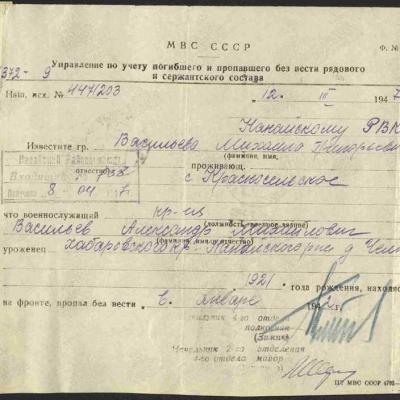 МВС СССР
Ф. №
Управление по учету погибшего и пропавшего без вести рядового
и сержантского состава
372-9
Наш. исх. № 447/203
"12" III 1947
Нанайскому РВК
Известите гр. Васильева Михаила Григорьевич
(фамилия, имя,
отчество) проживающ.
с Красносельское
Входящий №
8 04 7
что военнослужащий кр-ец
(должность, военное звание)
Васильев Александр Михайлович
(фамилия, имя, отчество)
уроженец Хабаровского кр. Нанайского р-на д.
1921 года рождения, находясь
на фронте, пропал без вести в январе 194
Начальник 4-го отдела
полковник
(Зимин)
Начальник 2-го отделения
4-го отдела майор
ЦТ МВС СССР